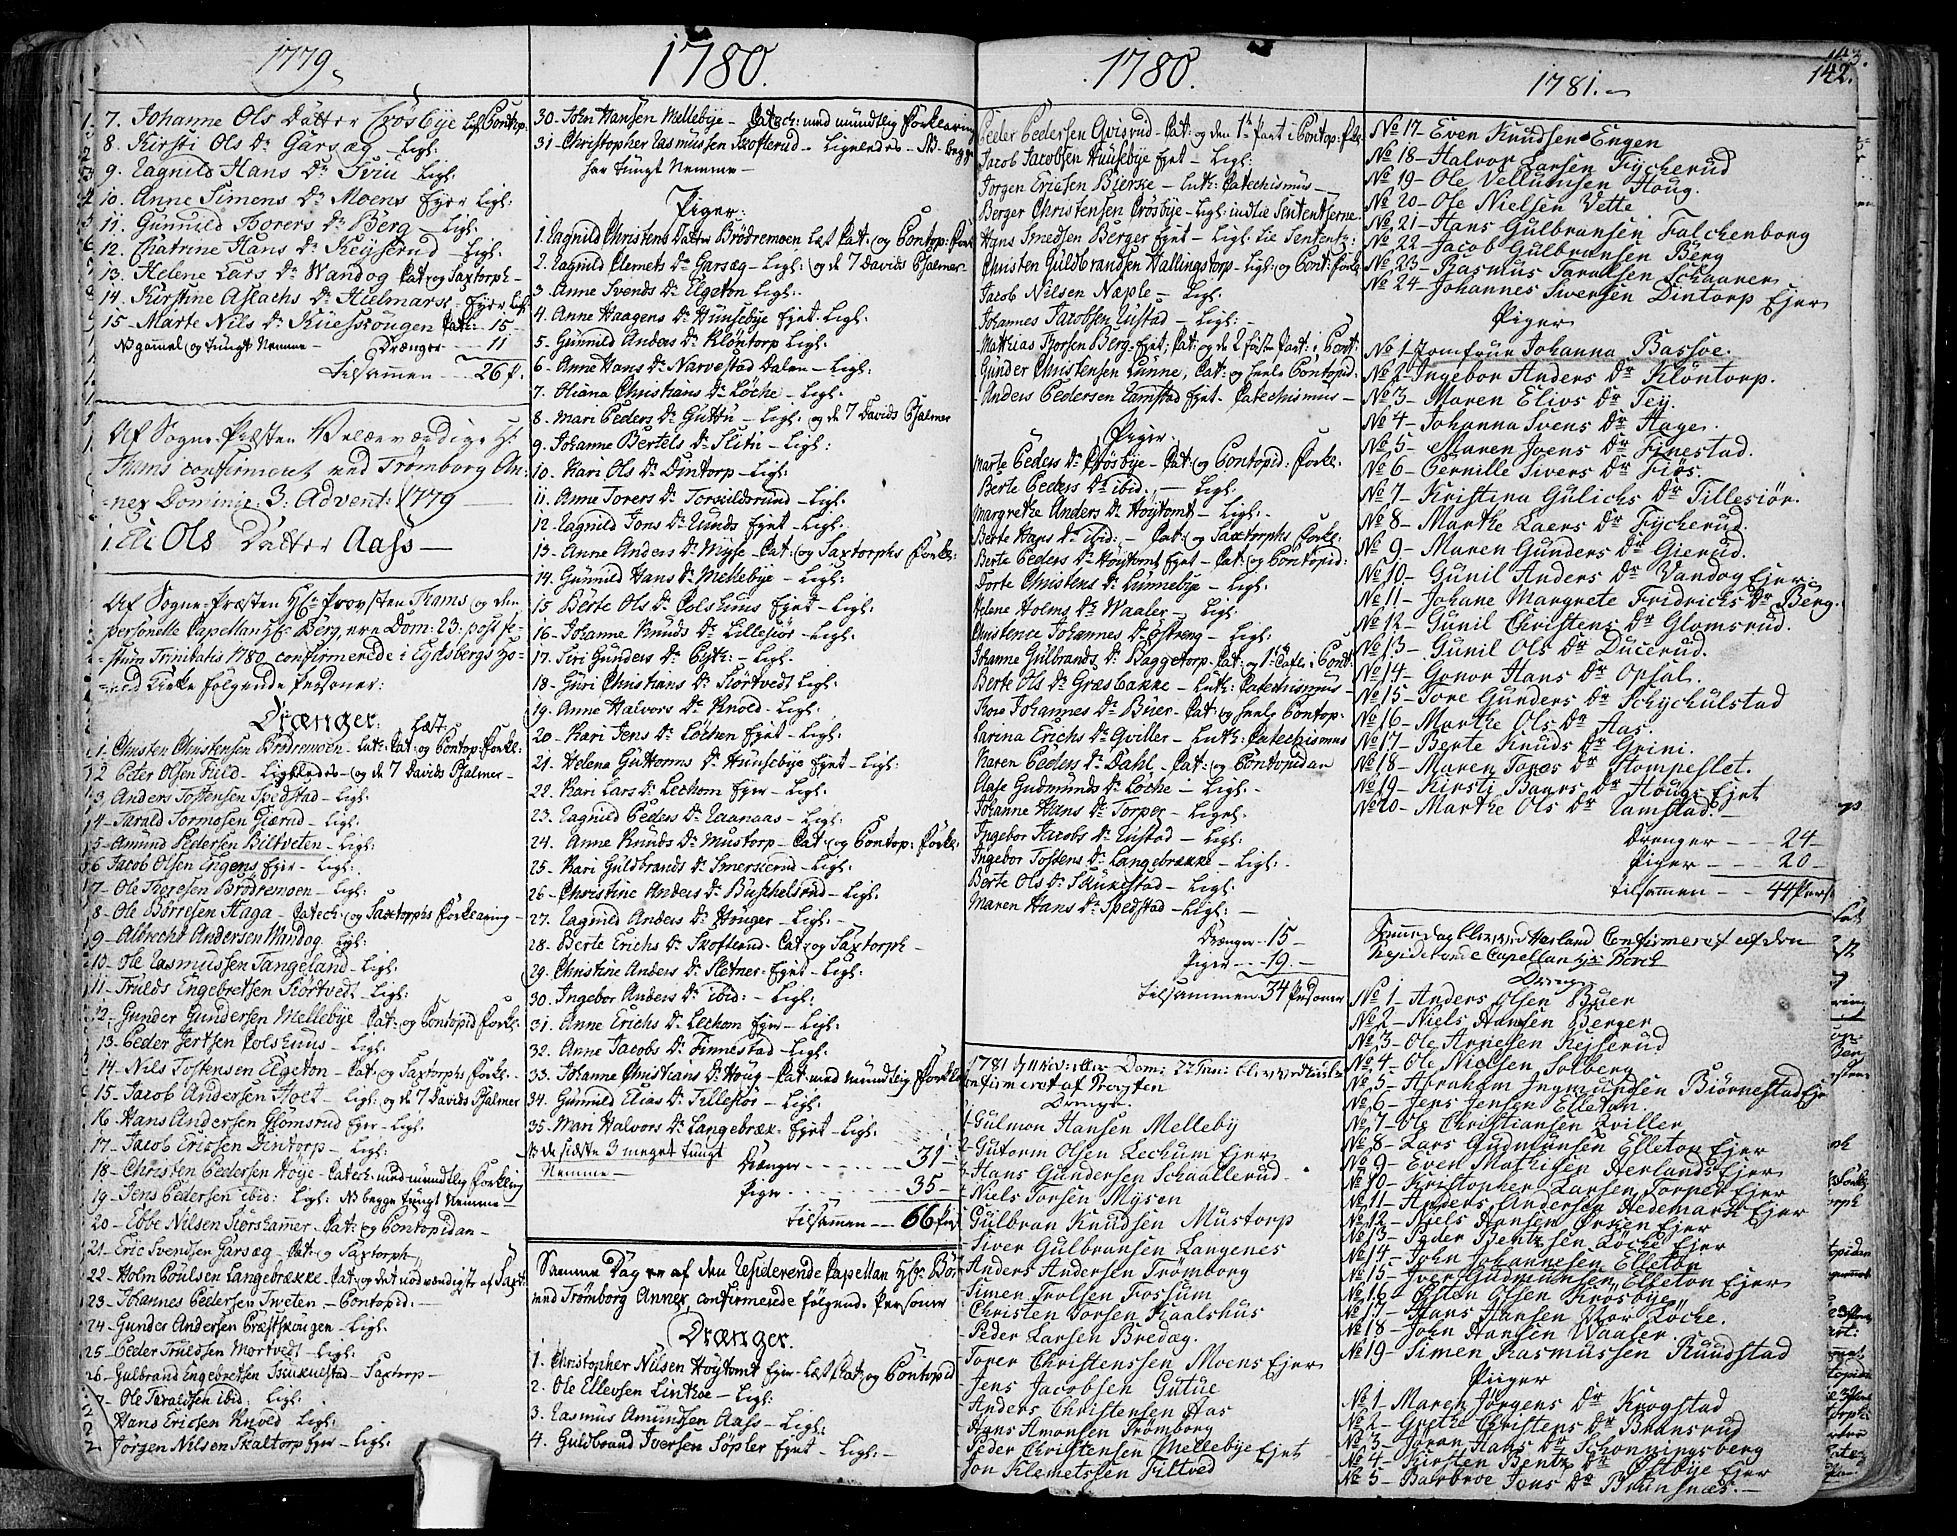 1779
7. Johanne Ols Datter Crösbye Ligl. Pontop:
8. Kirsti Ols Dr Garsæg - Ligl:
9. Ragnild Hans Dr Siviu Ligl:
10. Anne Simens Dr Moens Ejer Ligl:
11. Gunnild Torers Dr Berg - Ligl:
12. Chatrine Hans Dr Keyserud - Ligl:
13. Helene Lars Dr Wandog Cat: og Saxtorph -
14. Kirstine Aslachs Dr Hielmark - Ejer Ligl:
15. Marte Nils Dr Kuesrougen Cat: - 15 -
NB gammel og tungt Nemme - Drænger - 11
tilsammen --- 26 p.
Af Sogne-Præsten Velærværdige Hr
Thams confirmeret ved Trømborg An-
nex Dominic: 3. Advent: 1779
1. Eli Ols Datter Aass -
Af Sogne-Præsten Hr Provsten Thams og den
personelle Capellan Hr Berg, ere Dom: 23: post fe-
stum Trinitatis 1780 confirmerede i Eydsbergs Ho-
ved Kirke følgende Personer:
Drænger: Læst
1. Christen Christensen Brödremoen - Luth: Cat: og Pontop: Forkl:
2 Peter Olsen Field - Ligeledes - og de 7 Davids Psalmer -
3 Anders Tostensen Spedstad - Ligl:
4 - Tarald Tormosen Gierud - Ligl:
5 - Amund Pedersen Biltveten - Ligl:
6 Jacob Olsen Engens Ejer - Ligl:
7 - Ole Theresen Brödremoen - Ligl:
8 - Ole Börresen Haga - Catech: og Saxtorphs Forklaring -
9 - Albrecht Andersen Wandog Ligl:
10 - Ole Rasmussen Tangeland - Ligl:
11 - Trulds Engebretsen Skörtvedt - Ligl:
12. Gunder Gundersen Mellebye - Cat: og Pontopid Forkl:
13 - Peder Jertsen Colshuus - Ligl:
14 - Nils Tostensen Elgeton - Cat: og Saxtorphs Forkl:
15 - Jacob Andersen Hoel - Ligl: og de 7 Davids Psalmer
16 Hans Andersen Glomsrud Ejer - Ligl:
17. Jacob Ericsen Dintorp - Ligl:
18 - Christen Pedersen Höye - Catech: med mundtlig Forklaring
19 - Jens Pedersen ibid: Ligl: NB begge tungt Nemme -
20 - Ebbe Nilsen Störshamer - Cat: og Pontopidan -
21 - Eric Svendsen Garsæg - Cat: og Saxtorph
22 - Holm Poulsen Langebrække - Cat: og det nödvændigste af Saxt:
23 - Johannes Pedersen Tweten - Pontopid: -
24 - Gunder Andersen Præstskougen - Ligl:
25 - Peder Truldsen Mortvedt - Ligl:
26 - Gulbrand Engebretsen Skukulstad - Saxtorp -
7 - Ole Taraldsen ibid: Ligl:
Hans Ericsen Knold Ligl:
Jörgen Nilsen Skaltorp Ejer - Ligl:
1780.
30 - John Hansen Mellebye - Catech: med mundtlig Forklaring
31 - Christopher Rasmussen Skofterud - Ligeledes - NB. begge
har tungt Nemme -
Piger:
1. Ragnild Christens Datter Brödremoen Læst Cat: og Pontop: Forkl
2. Ragnild Clemets Dr Garsæg - Ligl: og de 7 Davids Psalmer
3. Anne Svends Dr Elgeton Ligl:
4. Anne Haagens Dr Hunsebye Ejet - Ligl:
5 - Gunnild Anders Dr Klöntorp Ligl:
6 - Anne Hans Dr Narvestad Dalen - Ligl:
7. Oliana Christians Dr Löche - Ligl:
8 - Mari Peders Dr Guttu - Ligl: og de 7 Davids Psalmer
9 - Johanne Bertels Dr Slitu - Ligl:
10. Kari Ols Dr Dintorp - Ligl:
11. Anne Torers Dr Torsildsrund - Ligl:
12 - Ragnild Jons Dr Runds Ejet - Ligl:
13 - Anne Anders Dr Myse - Cat: og Saxtorphs Forkl:
14. Gunnild Hans Dr Mellebye - Ligl:
15 Berte Ols Dr Colshuus Ejet - Ligl:
16 - Johanne Knuds Dr Lillesiör - Ligl:
17. Siri Gunders Dr Byk: - Ligl:
18 - Guri Christians Dr Skörtvedt Ligl:
19. Anne Halvors Dr Knold - Ligl:
20 - Kari Jens Dr Löchen Ejet - Ligl:
21. Helena Guttorms Dr Hunsebye Ejet - Ligl:
22. Kari Lars Dr Lechom Ejer - Ligl:
23. Ragnild Peders Dr Raanaas - Ligl:
24. Anne Knuds Dr Mustorp - Cat: og Pontop: Forkl:
25 - Kari Guldbrands Dr Smerskerud - Ligl:
26 - Christine Anders Dr Buschelsrud - Ligl:
27. Ragnild Anders Dr Houger - Ligl:
28. Berte Erichs Dr Skofterud - Cat: og Saxtorph -
29. Christine Anders Dr Sletner - Ejet - Ligl:
30. Ingebor Anders Dr ibid: - Ligl:
31. Anne Erichs Dr Lechom Ejer - Ligl:
32. Anne Jacobs Dr Finnestad - Ligl:
33. Johanne Christians Dr Houg - Cat: med mundtlig Forkl
34. Gunnild Elias Dr Tillesiör - Ligl:
35 - Mari Halvors Dr Langebræk - Ejet - Ligl:
NB de sidste 3 meget tungt
Nemme -
Drænger ------- 31 -
Piger ------- 35 -
tilsammen --- 66 Pers
Samme Dag er af den Residerende Capellan Hr Bör
ved Trömborg Annex confirmerede følgende Personer
Drænger.
1. Christopher Nilsen Höytomt Ejer - Læst Cat: og Pontopid
2. Ole Ellevsen Linkoe - Ligl:
3. Rasmus Amundsen Aass - Ligl:
4. Guldbrand Iversen Söpler Ejet - Ligl: -
1780.
Peder Pedersen Qvisrud - Cat: og den 1te Part i Pontop: Forkl
Jacob Jacobsen Huusebye Ejet - Ligl:
Jörgen Ericsen Bierke - Luth: Catechismus -
Berger Christensen Crösbye - Ligl: indtil Sententserne.
Hans Smedsen Berger Ejet - Ligl: til Sententz:
Christen Guldbrandsen Hallingstorp - Ligl: og Pont: Forkl.
Jacob Nilsen Næple - Ligl:
Johannes Jacobsen Rustad - Ligl: -
Mathias Tforsen Berg - Ejet, Cat: og de 2 første Part: i Pont:
Gunder Christensen Lunne, Cat: og heele Pontopid:
Anders Pedersen Ramstad Ejet - Catechismus -
Piger.
Marte Peders Dr Crösbye - Cat: og Pontopid: Forkl:
Berte Peders Dr ibid: - Ligl:
Margrethe Anders Dr Höytomt - Ligl:
Berte Hans Dr ibid: - Cat: og Saxtorphs Forkl:
Berte Peders Dr Höytomt Ejet - Cat: og Pontopid:
Dorte Christens Dr Lunnebye - Ligl:
Helene Holms Dr Waaler - Ligl:
Christence Johannes Dr Östreng - Ligl:
Johanne Gulbrands Dr Baggetorp - Cat: og 1te Parten i Pont:
Berte Ols Dr Græsbakke - Luth: Catechismus -
Tore Johannes Dr Buer - Cat: og heele Pontop:
Carina Erichs Dr Qviller - Luth: Catechismus
Karen Peders Dr Dahl - Cat: og Pontopidan
Aase Gudmunds Dr Löche - Ligl:
Johanne Hans Dr Torper - Ligel:
Ingebor Jacobs Dr Rustad - Ligl:
Ingebor Tostens Dr Langebrække - Ligl:
Berte Ols Dr Skukulstad - Ligl:
Maren Hans Dr Spedstad - Ligl: -
Drænger - 15 -
Piger --- 19. -
tilsammen 34 Personer
Confirmeret af Provsten
Drenge
Gulmon Hansen Melleby
Gutorm Olsen Lechum Ejer
Hans Gundersen Schaallerud.
Niels Torsen Mysen
Gulbran Knudsen Mustorp
Siver Gulbransen Langenes
Anders Andersen Trømborg
Simen Trolsen Fossum
Christen Torsen Kaalshus
Peder Larsen Bredag.
Torer Christenssen Moens Ejer
Jens Jacobsen Gutue
Anders Christensen Has
Hans Amonsen Trømborg
Peder Christensen Mellebye Ejet
Jon Klemetssen Tiltved
1781. -
143.
142.
No 17 - Even Knudsen Engen
No 18 - Halvor Larsen Fycherud
No 19 - Ole Vellumsen Houg.
No 20 - Ole Nielsen Vette
No 21 - Hans Gulbransen Falchenborg
No 22 - Jacob Gulbransen Berg
No 23 - Rasmus Taralsen Schaaren
No 24 - Johannes Swensen Dintorp Ejer
Piger
No 1 - Jomfrue Johanna Bassøe.
No 2 - Ingebor Anders Dr Klöntorp.
No 3 - Maren Elios Dr Tey.
No 4 - Johanna Svens Dr Hage.
No 5 - Maren Joens Dr Finestad.
No 6 - Pernille Sivers Dr Fiös.
No 7 - Kristina Gulichs Dr Tillesiör.
No 8 - Marthe Laers Dr Fycherud.
No 9 - Maren Gunders Dr Gierud.
No 10 - Gunil Anders Dr Vandog Ejer.
No 11 - Johane Margrete Fridrichs Dr Berg.
No 12 - Gunil Christens Dr Glomsrud.
No 13 - Gunil Ols Dr Ducerud.
No 14 - Gonor Hans Dr Opsal.
No 15 - Tore Gunders Dr Schychulstad
No 16 - Marthe Ols Dr Aas.
No 17 - Berte Knuds Dr Grini.
No 18 - Maren Tores Dr Stompeslet.
No 19 - Kirsti Baars Dr Hougs Ejet
No 20 - Marthe Ols Dr Ramstad. -
Drenger --- 24 -
Piger --- 20 -
tilsamen --- 44 Pers
Samme dag blev ved Herland Confirmeret af den
Residerende Capellan Hr: Borch
Drenge
No 1 - Anders Olsen Buer
No 2 - Niels Hansen Berger
No 3 - Ole Arnesen Kejserud
No 4 - Ole Nielsen Solberg
No 5 - Abraham Ingmundsen Biörnestad Eje
No 6 - Jens Jensen Elleton
No 7 - Ole Christiansen Qviller
No 8 - Lars Gudmunsen Elleton Ejer
No 9 - Even Mathisen Herlands Ejer
No 10 - Kristopher Larsen Torper Ejer
No 11 - Anders Andersen Hedemark Ejer
No 12 - Niels Hansen Ørken Ejer
No 13 - Peder Bentzsen Løche Ejer
No 14 - John Johannesen Elleton
No 15 - Iver Gudmunsen Elleton Ejer
No 16 - Osten Olsen Krösbye
No 17 - Hans Hansen Vor Løche.
No 18 - John Hansen Waaler.
No 19 - Simen Rasmussen Ruudstad
Piger
No 1 - Maren Jørgens Dr Krogstad
No 2 - Grethe Christens Dr Bransrud
No 3 - Jøran Hans Dr Schonningsberg
No 4 - Kirsten Bentz Dr Østbye Ejer
No 5 - Barbroe Jons Dr Brunsnæs. -